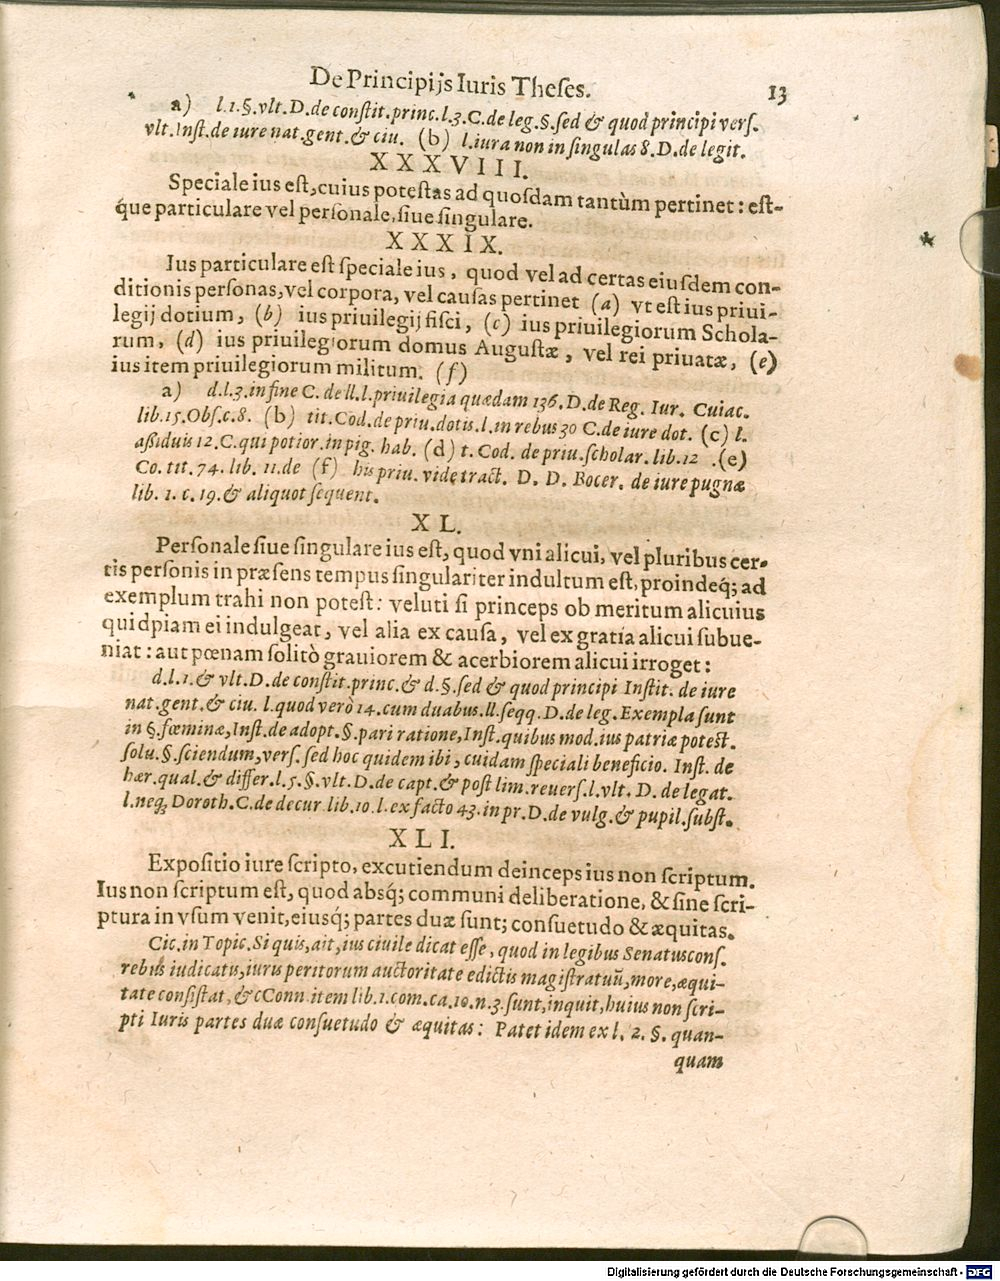 De Principijs Iuris Theſes. 13
a) l.1.§.vlt.D.de conſtit.princ.l.3.C.de leg.§.ſed & quod principi verſ.
vlt.Inſt.de iure nat.gent.& ciu. (b) l.iura non in ſingulas 8.D.de legit.
XXXVIII.
Speciale ius eſt,cuius poteſtas ad quoſdam tantùm pertinet: eſt-
q́ue particulare vel perſonale,ſiue ſingulare.
XXXIX.
Ius particulare eſt ſpeciale ius, quod vel ad certas eiuſdem con-
ditionis perſonas,vel corpora, vel cauſas pertinet (a) vt eſt ius priui-
legij dotium, (b) ius priuilegij fiſci, (c) ius priuilegiorum Schola-
rum, (d) ius priuilegiorum domus Auguſtæ, vel rei priuatæ, (e)
ius item priuilegiorum militum. (f)
a) d.l.3.in fine C. de ll.l.priuilegia quædam 136.D.de Reg. Iur. Cuiac.
lib.15.Obſ.c.8. (b) tit.Cod.de priu.dotis.l.in rebus 30 C.de iure dot. (c) l.
aßiduis 12.C.qui potior.in pig. hab. (d) t. Cod. de priu.ſcholar.lib.12 .(e)
Co. tit. 74. lib. 11.de (f) his priu. vide tract. D. D. Bocer. de iure pugnæ
lib. 1. c. 19.& aliquot ſequent.
XL.
Perſonale ſiue ſingulare ius eſt, quod vni alicui, vel pluribus cer-
tis perſonis in præſens tempus ſingulariter indultum eſt, proindeq́; ad
exemplum trahi non poteſt: veluti ſi princeps ob meritum alicuius
quidpiam ei indulgeat, vel alia ex cauſa, vel ex gratia alicui ſubue-
niat: aut pœnam ſolitò grauiorem & acerbiorem alicui irroget:
d.l.1.& vlt.D.de conſtit.princ.& d.§.ſed & quod principi Inſtit. de iure
nat.gent.& ciu. l.quod verò 14.cum duabus.ll.ſeqq.D.de leg.Exempla ſunt
in §.fœminæ,Inſt.de adopt.§.pari ratione,Inſt.quibus mod.ius patriæ poteſt.
ſolu.§.ſciendum,verſ.ſed hoc quidem ibi, cuidam ſpeciali beneficio. Inſt. de
hær.qual.& differ.l.5.§.vlt.D.de capt.& poſt lim.reuerſ.l.vlt. D. de legat.
l.neq; Doroth.C.de decur.lib.10.l.ex facto 43.in pr.D.de vulg.& pupil.ſubſt.
XLI.
Expoſitio iure ſcripto, excutiendum deinceps ius non ſcriptum.
Ius non ſcriptum eſt, quod absq́; communi deliberatione, & ſine ſcri-
ptura in vſum venit, eiusq́; partes duæ ſunt; conſuetudo & æquitas.
Cic.in Topic.Si quis,ait,ius ciuile dicat eſſe, quod in legibus Senatusconſ.
rebus iudicatis,iuris peritorum auctoritate edictis magiſtratuū,more,æqui-
tate conſiſtat, &c Conn.item lib.1.com.ca.10.n.3.ſunt,inquit,huius non ſcri-
pti Iuris partes duæ conſuetudo & æquitas: Patet idem ex l. 2. §. quan-
quam
Digitalisierung gefördert durch die Deutsche Forschungsgemeinschaft - DFG